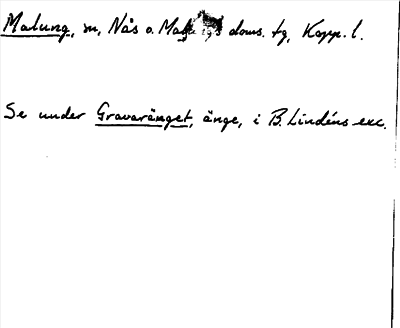 Malung, sn, Nås o. Malungs doms. tg, Kopp. l.
Se under Gravaränget, änge, i B. Lindéns exc.